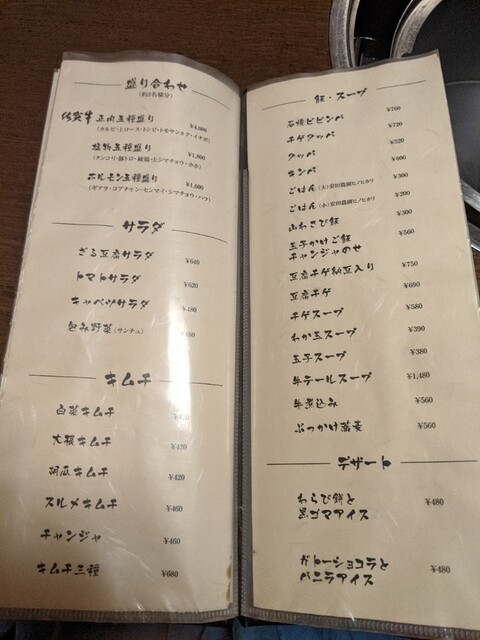 盛り合わせ
(約2名様分)
佐賀牛 正肉五種盛り ¥4,800
(カルビ・上ロース・トンビ・トモサンカク・イチボ)
植物五種盛り ¥1,800
ホルモン五種盛り ¥1,600
(ギアラ・コプチャン・センマイ・シマチョウ・ハツ)
サラダ
ざる豆腐サラダ ¥640
トマトサラダ ¥620
キャベツサラダ ¥480
包み野菜(サンチュ)
キムチ
白菜キムチ
大根キムチ ¥420
胡瓜キムチ ¥420
スルメキムチ ¥460
チャンジャ ¥460
キムチ三種 ¥680
飯・スープ
石焼ビビンバ ¥760
チゲクッパ ¥720
クッパ ¥520
キンパ ¥600
ごはん(大)安田農園ヒノヒカリ ¥300
ごはん(小)安田農園ヒノヒカリ ¥200
山わさび飯 ¥300
玉子かけご飯 ¥560
チャンジャのせ
豆腐チゲ納豆入り ¥750
豆腐チゲ ¥690
チゲスープ ¥580
わか玉スープ ¥390
玉子スープ ¥380
牛テールスープ ¥1,480
牛煮込み ¥560
ぶっかけ蕎麦 ¥560
デザート
わらび餅と ¥480
黒ゴマアイス
ガトーショコラと ¥480
バニラアイス